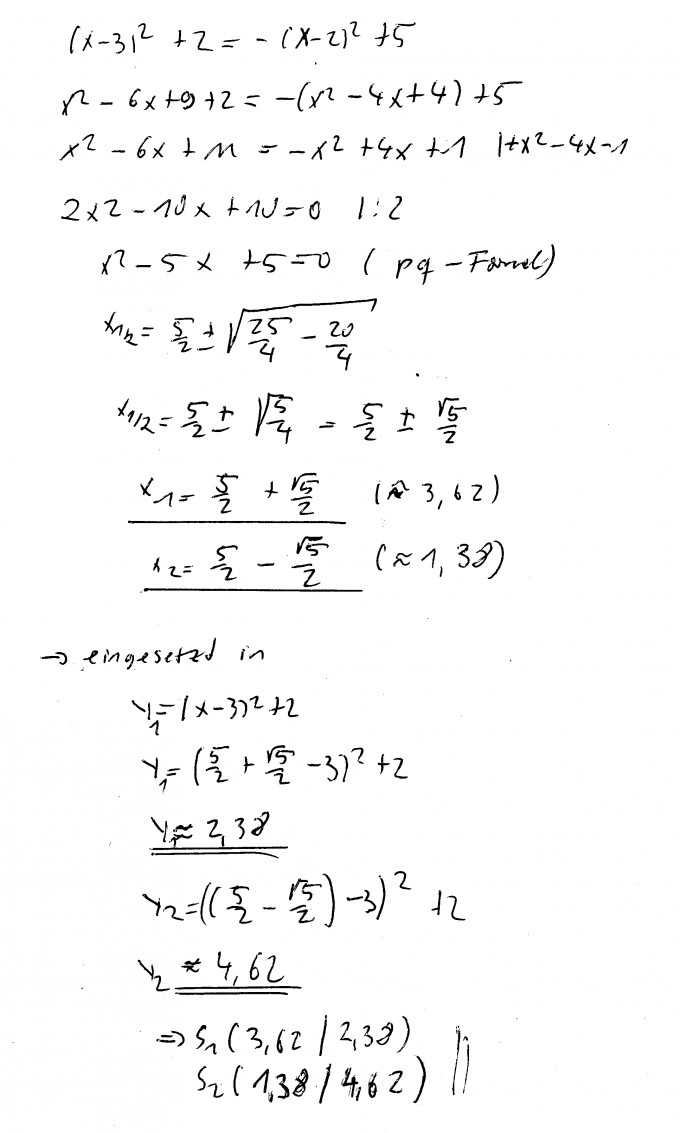 (x-3)² + 2 = - (x-2)² + 5
x² - 6x + 9 + 2 = -(x² - 4x + 4) + 5
x² - 6x + 11 = -x² + 4x + 1 |+x² - 4x - 1
2x2 - 10x + 10 = 0 |:2
x² - 5x + 5 = 0 ( pq - Formel)
x1/2 = 5/2 ± √(25/4 - 20/4)
x1/2 = 5/2 ± √(5/4) = 5/2 ± √5/2
x1 = 5/2 + √5/2 (≈ 3,62)
x2 = 5/2 - √5/2 (≈ 1,38)
→ eingesetzt in
y1 = (x-3)² + 2
y1 = (5/2 + √5/2 - 3)² + 2
y1 ≈ 2,38
y2 = ((5/2 - √5/2) - 3)² + 2
y2 ≈ 4,62
⇒ S1 (3,62 / 2,38)
S2 (1,38 / 4,62)